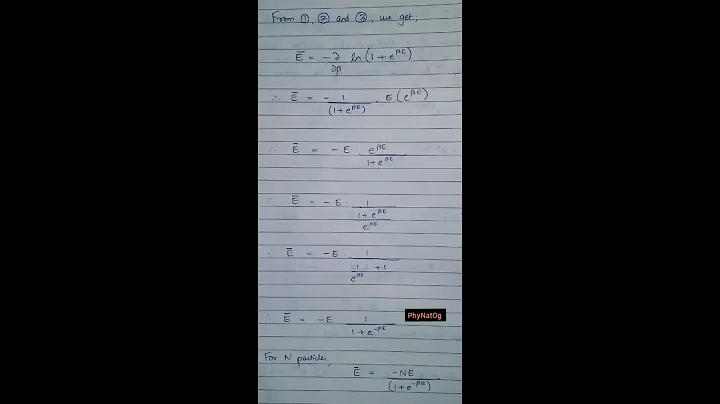 From ①, ② and ③, we get,
Ē = -∂/∂β ln(1 + e^βE)
∴ Ē = - 1/(1+e^βE) . E(e^βE)
∴ Ē = -E e^βE/(1+e^βE)
∴ Ē = -E 1/((1+e^βE)/e^βE)
∴ Ē = -E 1/(1/e^βE +1)
∴ Ē = -E 1/(1+e^-βE)
PhyNatOg
For N particles,
Ē = -NE/(1+e^-βE)